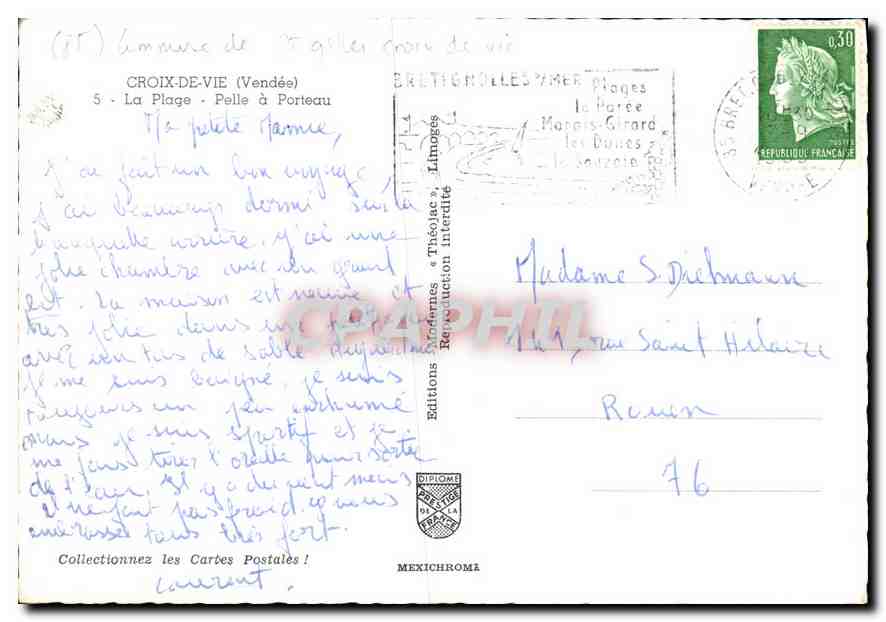 (85) Commune de St gilles croix de vie
CROIX-DE-VIE (Vendée)
5 - La Plage - Pelle à Porteau
Ma petite Mamie,
J'ai fait un bon voyage,
j'ai beaucoup dormi sur la
banquette arrière. j'ai une
jolie chambre avec un grand
lit. La maison est neuve et
très jolie dans une
avec un tas de sable. Aujourd'hui
je me suis baigné. je suis
toujours un peu enrhumé
mais je suis sportif et je
me fais tirer l'oreille pour sortir
de l'eau. Il y a du vent mais
il ne fait pas froid. je vous
embrasse tous très fort.
Laurent.
Collectionnez les Cartes Postales !
Editions Modernes « Théojac », Limoges
Reproduction interdite
DIPLOME
PRESTIGE
DE LA
FRANCE
MEXICHROME
BRETIGNOLLES S/MER
Plages
la Parée
Marais-Girard
les Dunes
la Sauzaie
85 BRET
VENDEE
0,30
POSTES
REPUBLIQUE FRANÇAISE
Madame S. Dielmann
rue Saint Hilaire
Rouen
76
CPAPHIL